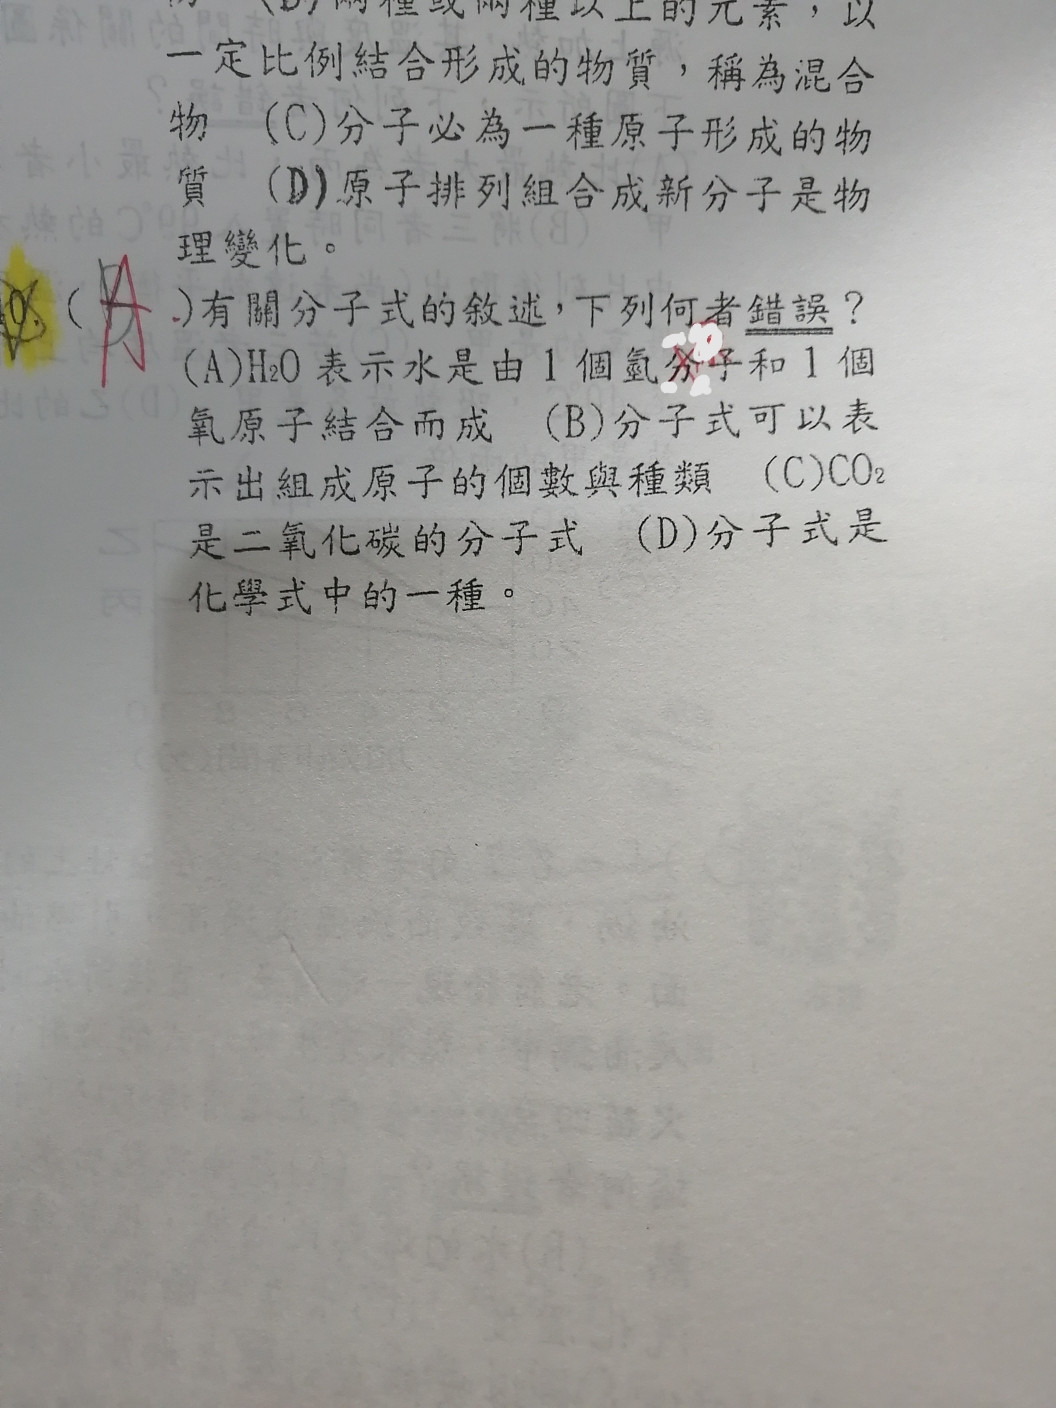 (B)兩種或兩種以上的元素，以
一定比例結合形成的物質，稱為混合
物 (C)分子必為一種原子形成的物
質 (D)原子排列組合成新分子是物
理變化。
( A )有關分子式的敘述，下列何者錯誤？
(A)H₂O 表示水是由 1 個氫分子和 1 個
氧原子結合而成 (B)分子式可以表
示出組成原子的個數與種類 (C)CO₂
是二氧化碳的分子式 (D)分子式是
化學式中的一種。